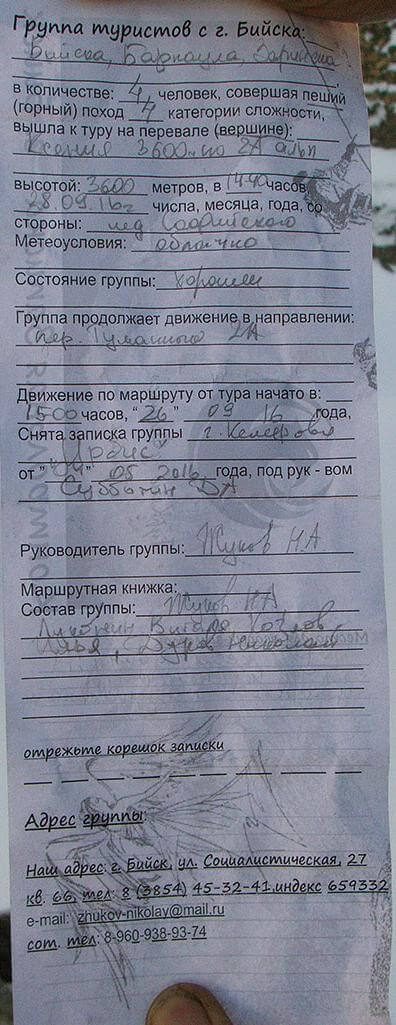 Группа туристов с г. Бийска:
Бийска, Барнаула, Заринска
в количестве: 4 человек, совершая пеший
(горный) поход 4 категории сложности,
вышла к туру на перевале (вершине):
Ксения 3600м по 2А альп
высотой: 3600 метров, в 14 40 часов
28.09.16г числа, месяца, года, со
стороны: лед
Метеоусловия: облачно
Состояние группы: хорошее
Группа продолжает движение в направлении:
пер. Туманного 2А
Движение по маршруту от тура начато в:
1500 часов, "26" 09 16 года,
Снята записка группы г. Кемерова
от " 05 2016 года, под рук - вом
Субботин ДА
Руководитель группы: Жуков НА
Маршрутная книжка:
Состав группы: Жуков НА
Дуров Николай
отрежьте корешок записки
Адрес группы:
Наш адрес: г. Бийск, ул. Социалистическая, 27
кв. 66, тел: 8 (3854) 45-32-41,индекс 659332
e-mail: zhukov-nikolay@mail.ru
сот. тел: 8-960-938-93-74